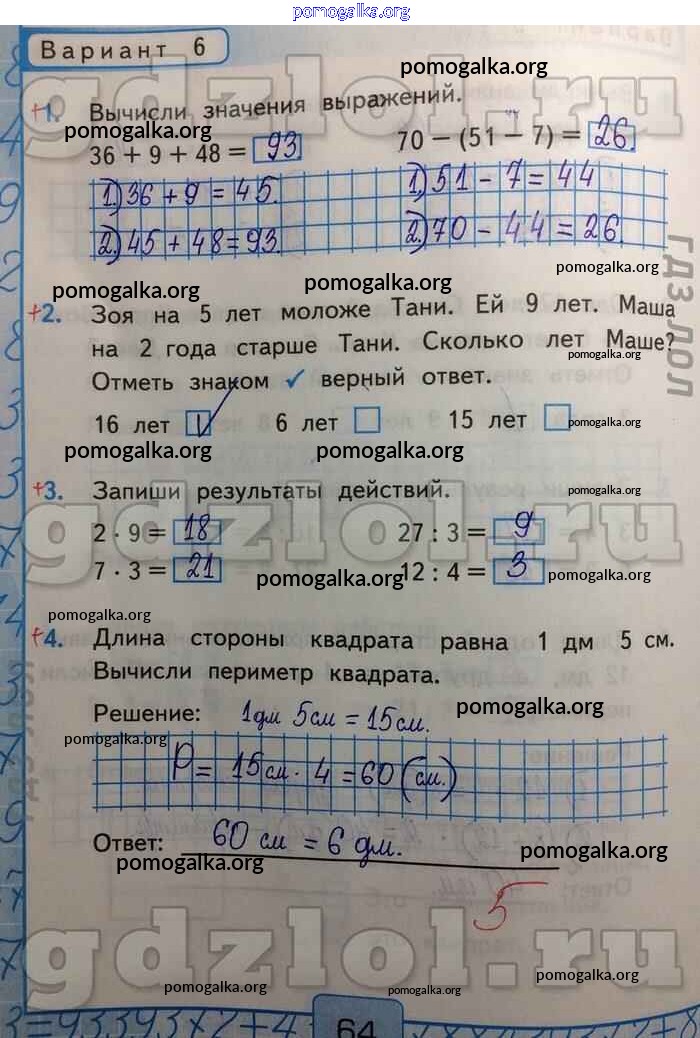 pomogalka.org
Вариант 6
pomogalka.org
+1. Вычисли значения выражений.
pomogalka.org
36 + 9 + 48 = 93
70 − (51 − 7) = 26.
1) 36 + 9 = 45.
1) 51 − 7 = 44
2) 45 + 48 = 93.
2) 70 − 44 = 26.
pomogalka.org
pomogalka.org
pomogalka.org
+2. Зоя на 5 лет моложе Тани. Ей 9 лет. Маша
на 2 года старше Тани. Сколько лет Маше?
pomogalka.org
Отметь знаком ✓ верный ответ.
16 лет ✓ 6 лет 15 лет
pomogalka.org
pomogalka.org pomogalka.org
+3. Запиши результаты действий.
pomogalka.org
2 · 9 = 18 27 : 3 = 9
7 · 3 = 21 12 : 4 = 3
pomogalka.org pomogalka.org
pomogalka.org
+4. Длина стороны квадрата равна 1 дм 5 см.
Вычисли периметр квадрата.
Решение: 1 дм 5 см = 15 см.
pomogalka.org
pomogalka.org
P = 15 см · 4 = 60 (см.)
Ответ: 60 см = 6 дм.
pomogalka.org pomogalka.org
5
pomogalka.org pomogalka.org pomogalka.org
64
gdzlol.ru
gdzlol.ru
gdzlol.ru
гдзлол
гдзлол